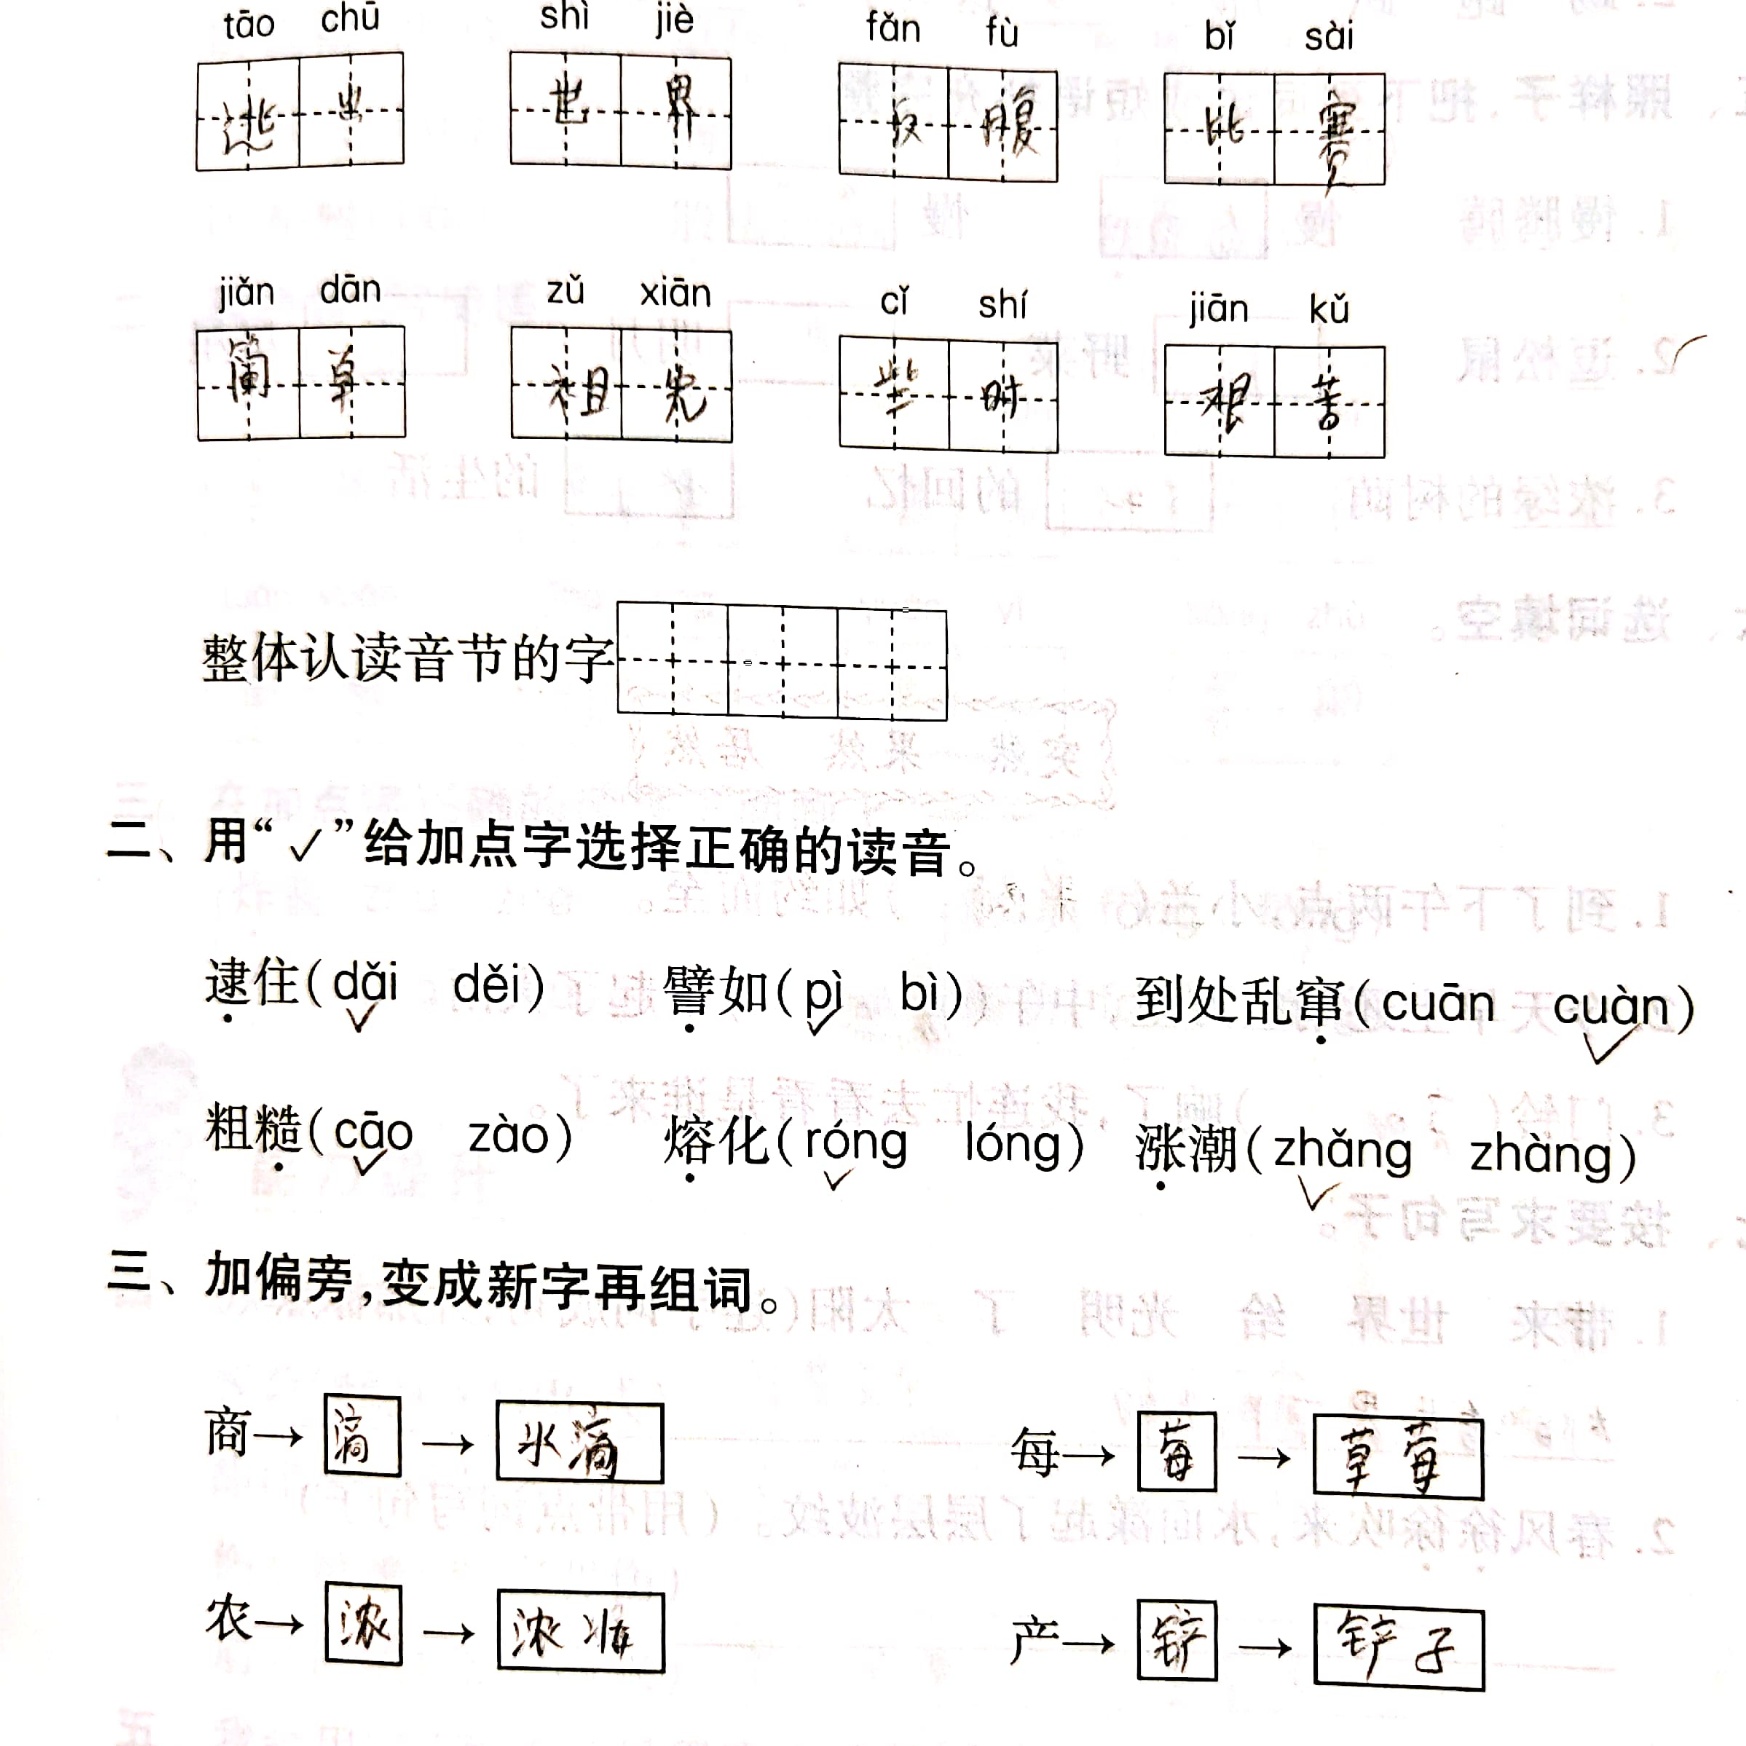 tāo chū shì jiè fǎn fù bǐ sài
逃 出 世 界 反 腹 比 赛
jiǎn dān zǔ xiān cǐ shí jiān kǔ
简 单 祖 先 些 时 艰 苦
整体认读音节的字
二、用“✓”给加点字选择正确的读音。
逮住(dǎi děi) 譬如(pì bì) 到处乱窜(cuān cuàn)
粗糙(cāo zào) 熔化(róng lóng) 涨潮(zhǎng zhàng)
三、加偏旁,变成新字再组词。
商→ 滴 → 水滴 每→ 莓 → 草莓
农→ 浓 → 浓 产→ 铲 → 铲子